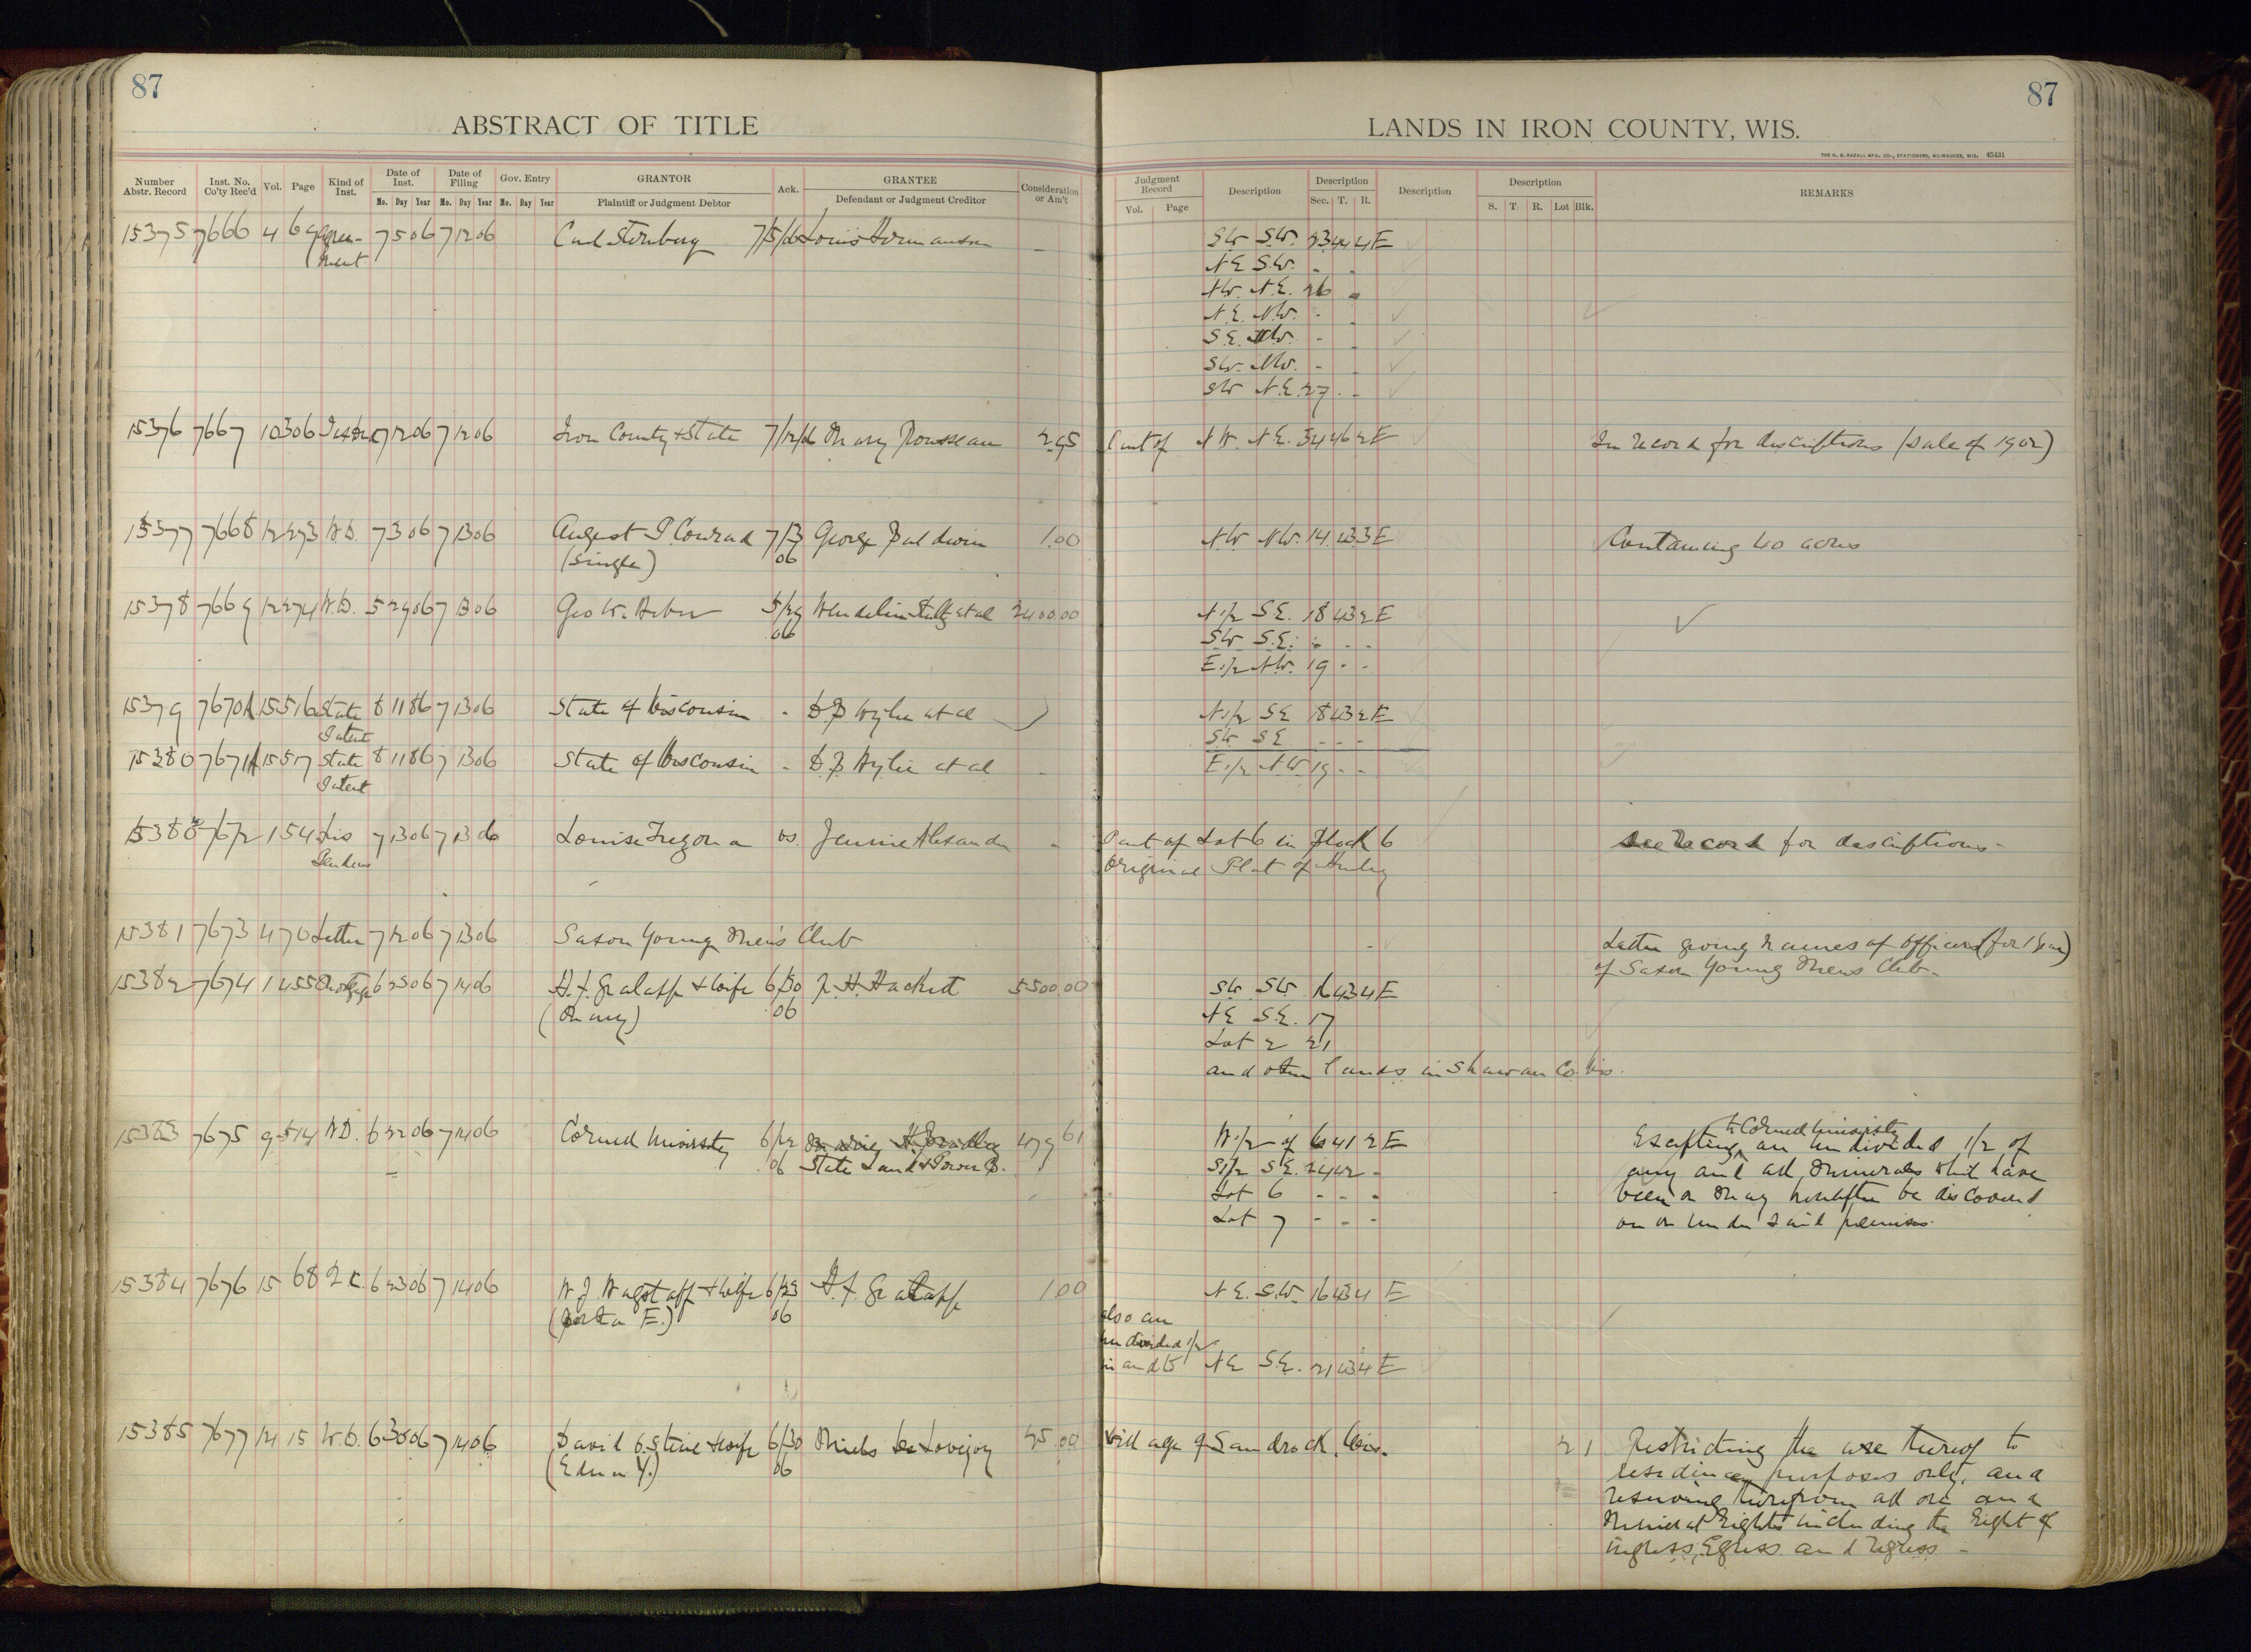 87
87
ABSTRACT OF TITLE
LANDS IN IRON COUNTY, WIS.
THE H. G. RAZALL MFG. CO., STATIONERS, MILWAUKEE, WIS. 45431
Number Abstr. Record Inst. No. Co'ty Rec'd Vol. Page Kind of Inst. Date of Inst. Date of Filing Gov. Entry GRANTOR Ack. GRANTEE Consideration or Am't
Mo. Day Year Mo. Day Year Mo. Day Year Plaintiff or Judgment Debtor Defendant or Judgment Creditor
Judgment Record Description Description Description Description REMARKS
Vol. Page Sec. T. R. S. T. R. Lot Blk.
15375 7666 4 69 Agree- 7 5 06 7 12 06 Carl Sternberg 7/5/06 Louis Hermanson - SW SW. 23 44 4 E
ment NE S.W. - -
NW. N.E. 26 "
N.E. N.W. - -
S.E. NW. - -
SW. NW. - -
SW N.E. 27 - -
15376 7667 10 306 7 12 06 7 12 06 Iron County & State 7/12/06 Mary Rousseau 2.95 Part of NW. N.E. 34 46 2 E In record for descriptions (Sale of 1902)
15377 7668 12 273 W.D. 7 3 06 7 13 06 August P. Conrad 7/3 George Baldwin 1.00 N.W NW. 14 43 3 E Containing 40 acres
(Single) 06
15378 7669 12 274 W.D. 5 29 06 7 13 06 Geo W. 5/29 Wendelin et al 2400.00 N1/2 S.E. 18 43 2 E
06 SW S.E. - - -
E1/2 NW. 19 - -
15379 7670 A 15 516 State 8 11 86 7 13 06 State of Wisconsin - D B Wylie et al N1/2 SE 18 43 2 E
Patent SW SE - - -
15380 7671 A 15 517 State 8 11 86 7 13 06 State of Wisconsin - D.B Wylie et al - E1/2 N.W. 19 - -
Patent
15380 1/2 7672 1 54 Lis 7 13 06 7 13 06 Louise Tregona vs. Jennie Alexander - Part of Lot 6 in Block 6 See Record for descriptions -
Pendens Original Plat of Hurley
15381 7673 4 70 Letter 7 12 06 7 13 06 Saxon Young Men's Club Letter giving names of officers (for 1 year)
of Saxon Young Mens Club -
15382 7674 1 455 Mortgage 6 25 06 7 14 06 H.F. Gralapp & wife 6/30 J. H. Hackett 5500.00 SW. SW. 16 43 4 E
(Mary) 06 NE S.E. 17
Lot 2 21
and other lands in Shawano Co. Wis.
15383 7675 9 514 W.D. 6 22 06 7 14 06 Cornell University 6/22 479 61 W1/2 of 6 41 2 E Excepting to Cornell University an undivided 1/2 of
06 State Land & Power Co. S1/2 S.E. 24 42 - any and all minerals which have
Lot 6 - - - been or may hereafter be discovered
Lot 7 - - - on or under said premises.
15384 7676 15 68 2 C. 6 23 06 7 14 06 W J Wagstaff & wife 6/23 H.F. Gralapp 1.00 N.E. S.W. 16 43 4 E
(Portia E.) 06 also an
undivided 1/2
in and to NE S.E. 21 43 4 E
15385 7677 14 15 W.D. 6 30 06 7 14 06 David C. Steine & wife 6/30 Lovejoy 45.00 Village of Sandrock, Wis. 2 1 Restricting the use thereof to
(Edna Y.) 06 residence purposes only, and
reserving therefrom all ore and
Mineral Rights including the Right of
ingress, Egress and regress -